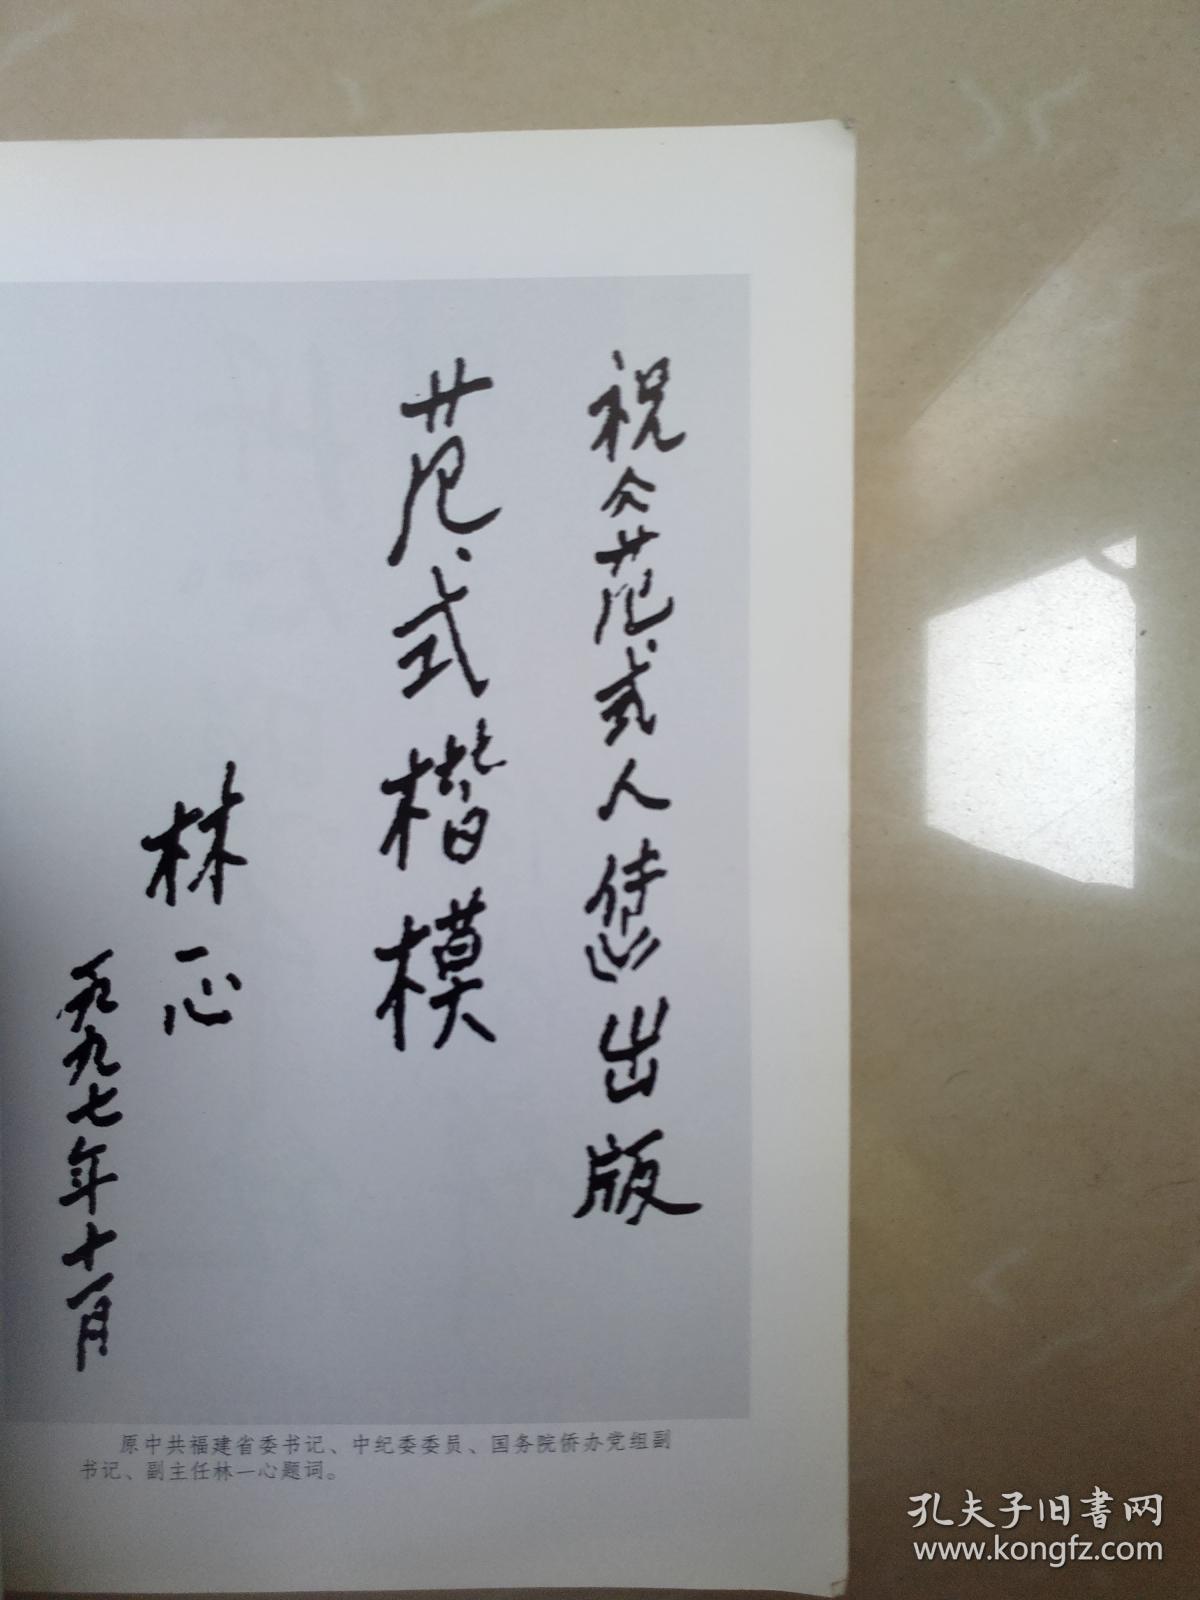 祝《范式人传》出版
范式楷模
林一心
一九九七年十一月
原中共福建省委书记、中纪委委员、国务院侨办党组副
书记、副主任林一心题词。
孔夫子旧書网
www.kongfz.com